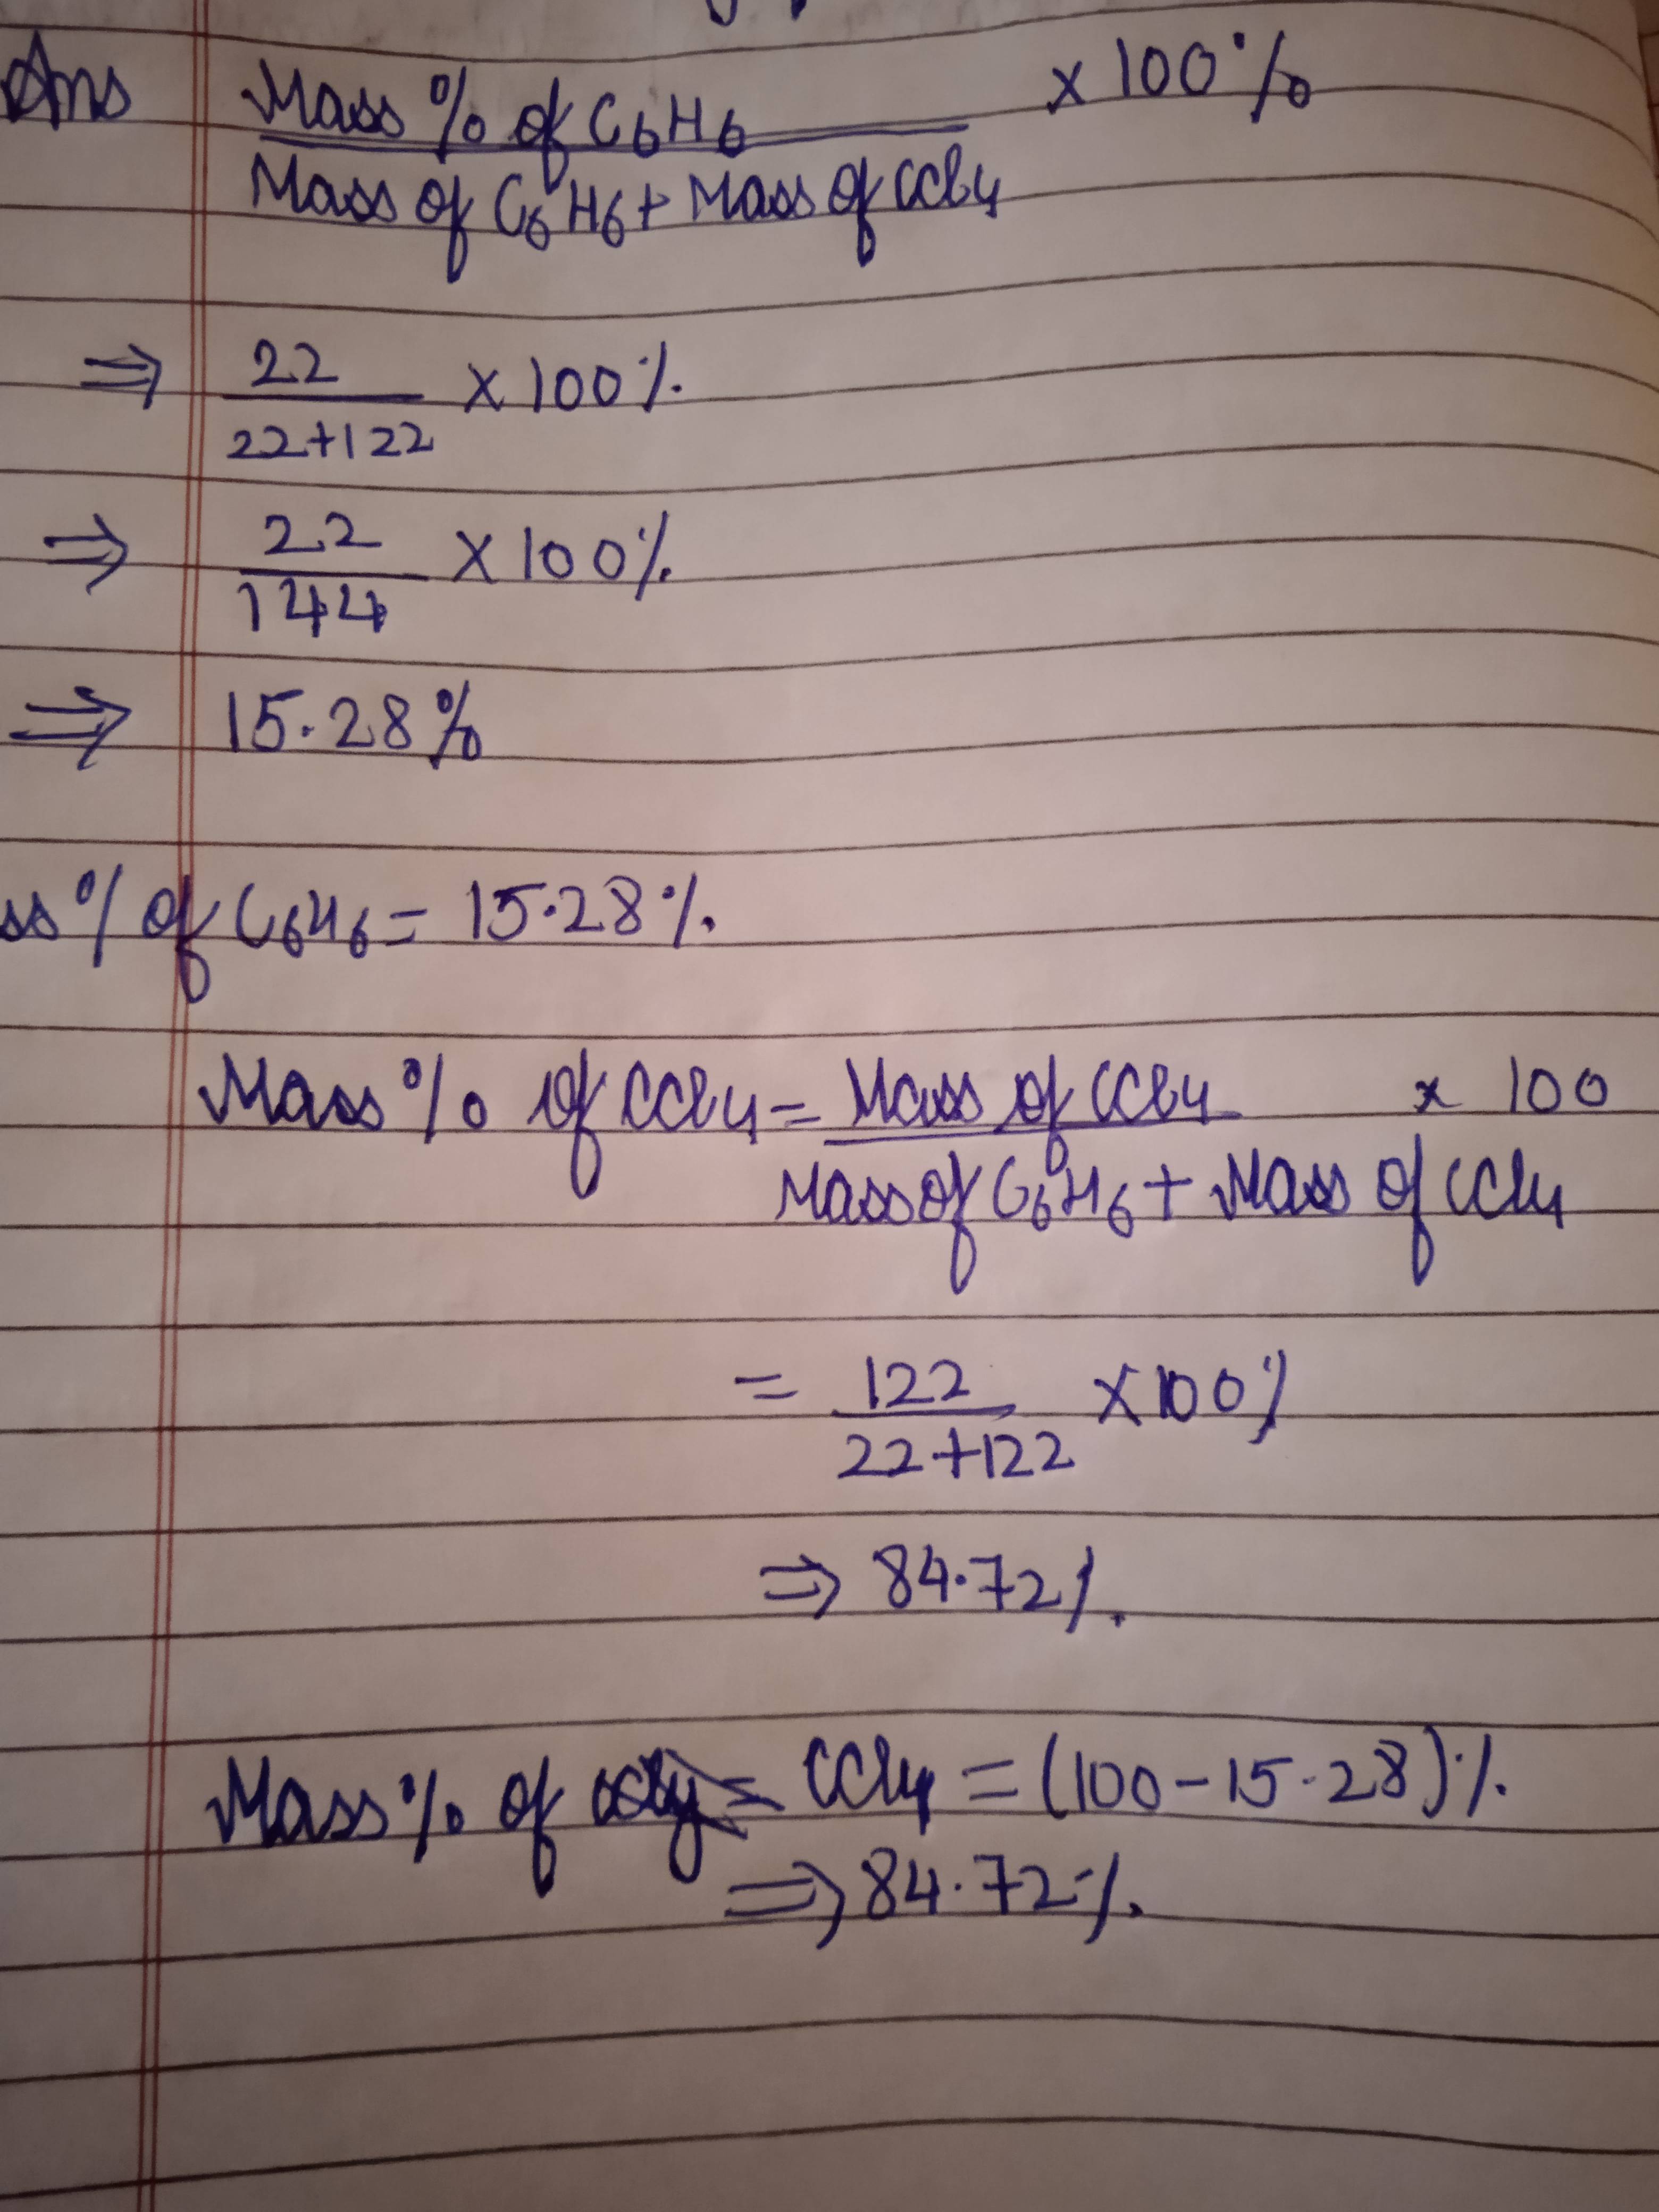 Ans Mass % of C6H6 x 100%
Mass of C6H6 + Mass of CCl4
⇒ 22 x 100%
22+122
⇒ 22 x 100%
144
⇒ 15.28%
ss % of C6H6 = 15.28%.
Mass % of CCl4 = Mass of CCl4 x 100
Mass of C6H6 + Mass of CCl4
= 122 x 100%
22+122
⇒ 84.72%.
Mass % of CCl4 = (100-15.28)%.
⇒ 84.72%.